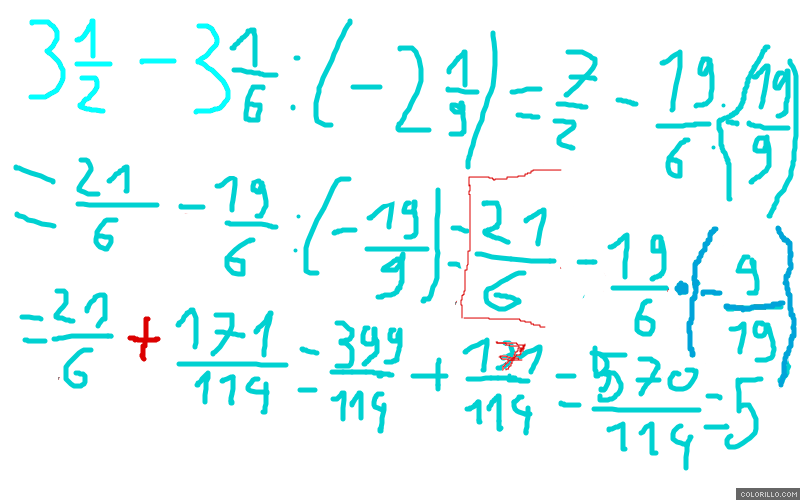 3 1/2 - 3 1/6 : (-2 1/9) = 7/2 - 19/6 : (-19/9)
= 21/6 - 19/6 : (-19/9) = 21/6 - 19/6 · (-9/19)
= 21/6 + 171/114 = 399/114 + 171/114 = 570/114 = 5
COLORILLO.COM